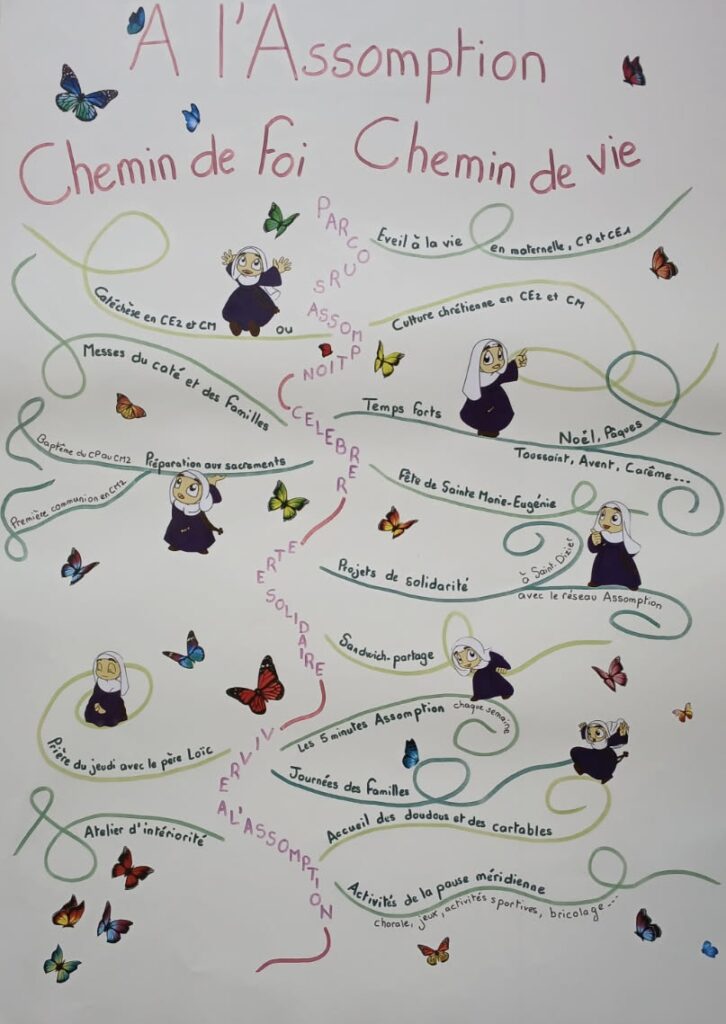 A l'Assomption
Chemin de Foi Chemin de vie
PARCOURS
ASSOMPTION
Eveil à la vie en maternelle, CP et CE1
Catéchèse en CE2 et CM
ou
Culture chrétienne en CE2 et CM
CELEBRER
Messes du caté et des familles
Temps forts
Noël, Pâques
Toussaint, Avent, Carême...
Préparation aux sacrements
Baptême du CP au CM2
Première communion en CM2
Fête de Sainte Marie-Eugénie
ETRE
SOLIDAIRE
Projets de solidarité
à Saint Dizier
avec le réseau Assomption
Sandwich-partage
VIVRE
A L'ASSOMPTION
Prière du jeudi avec le père Loïc
Les 5 minutes Assomption chaque semaine
Journées des familles
Accueil des doudous et des cartables
Atelier d'intériorité
Activités de la pause méridienne
chorale, jeux, activités sportives, bricolage...